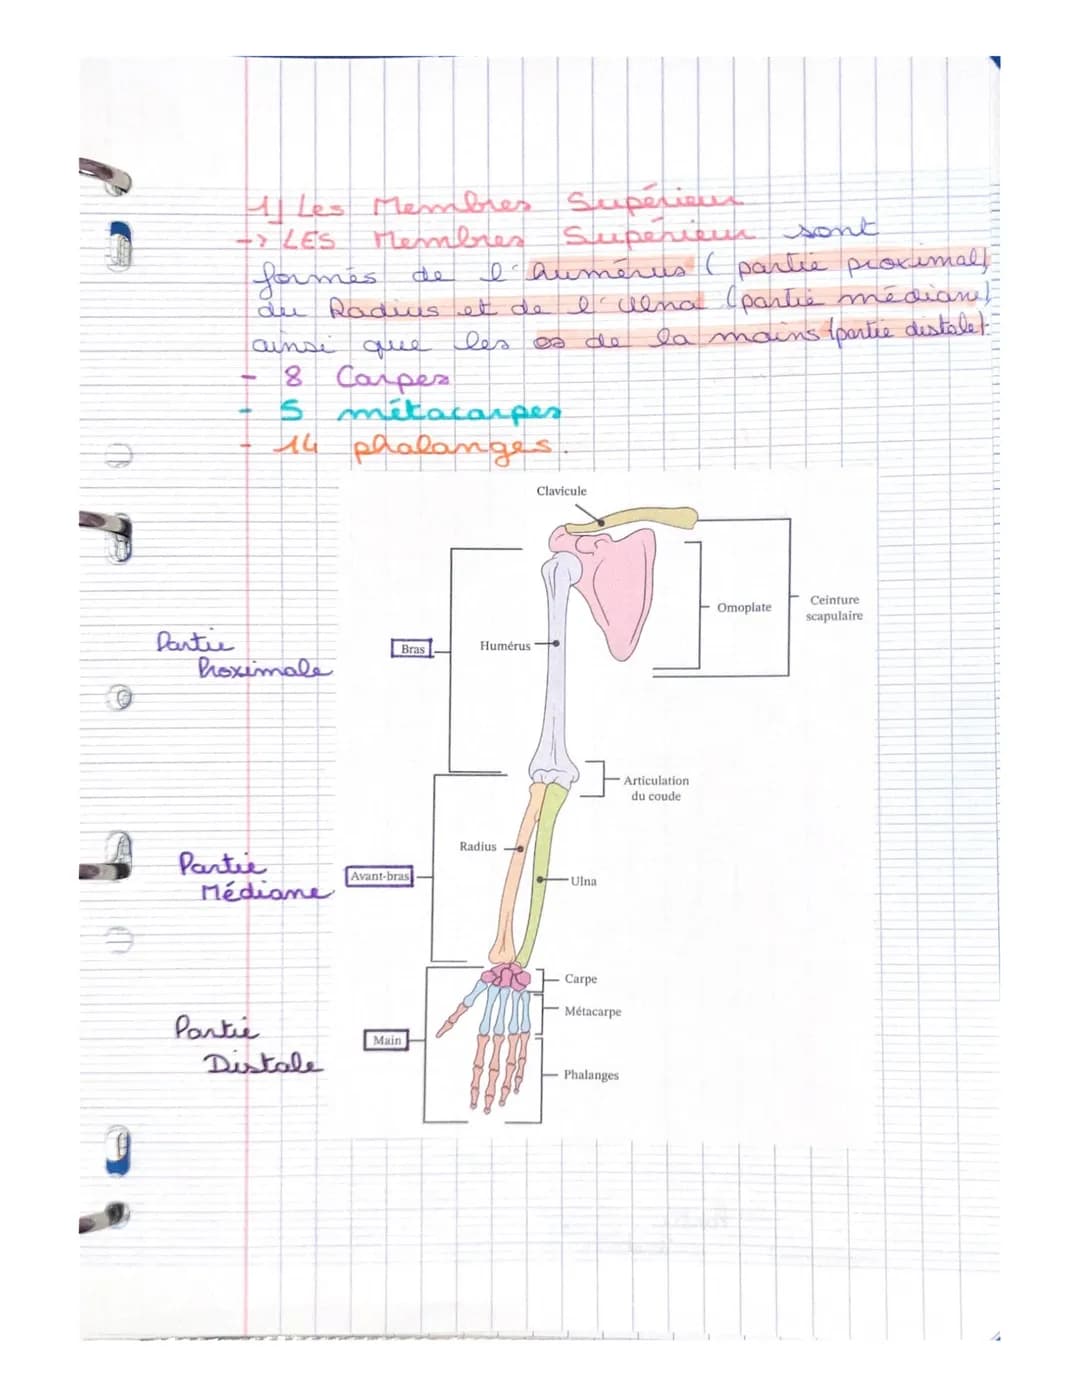 1) Les Membres Supérieur
-> LES Membres Supérieur sont
formés de l'humérus ( partie proximal)
du Radius et de l'ulna (partie médiane)
ainsi que les os de la mains (partie distale):
- 8 Carpes
- 5 métacarpes
- 14 phalanges.
Clavicule
Omoplate
Ceinture
scapulaire
Partie
Proximale
Bras
Humérus
Articulation
du coude
Partie
Médiane
Avant-bras
Radius
Ulna
Carpe
Métacarpe
Partie
Distale
Main
Phalanges